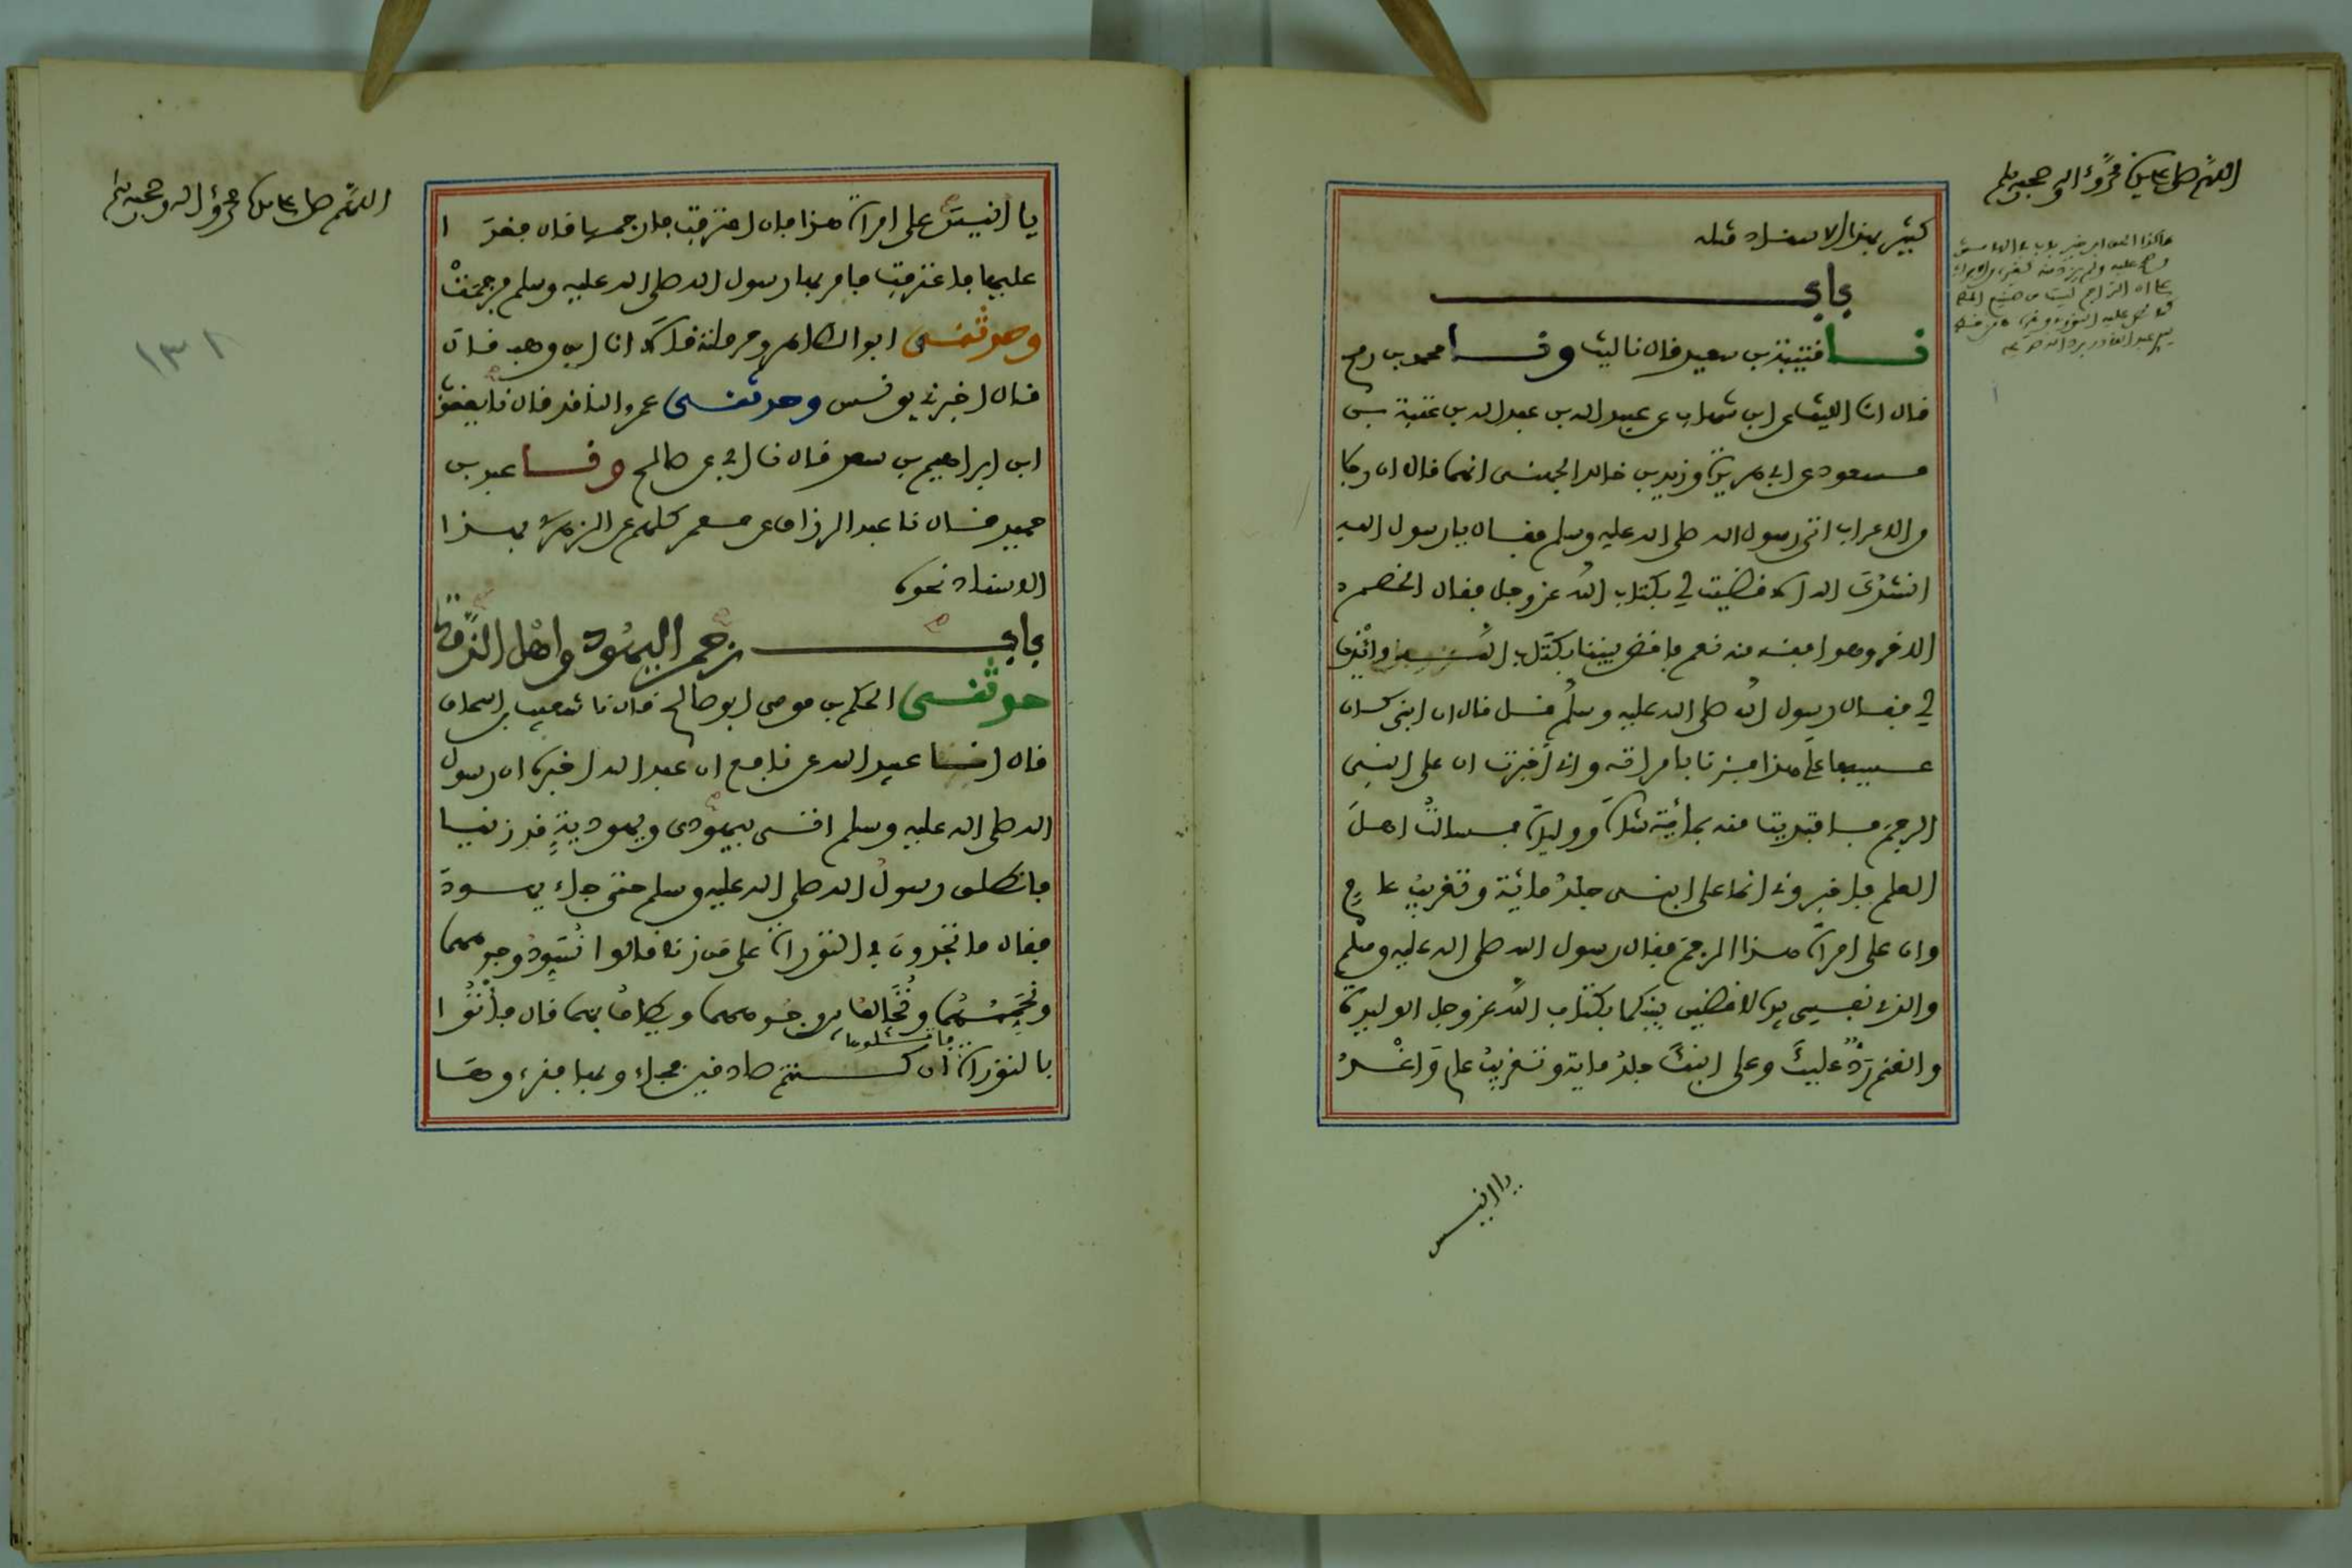 اللهم صل على سيدنا محمد وءاله وصحبه وسلم
كثير بهذا الاسناد مثله
باب
نا قتيبة بن سعيد قال نا ليث ونا محمد بن رمح
قال انا الليث عن ابن شهاب عن عبيد الله بن عبد الله بن عتبة بن
مسعود عن ابي هريرة وزيد بن خالد الجهني انهما قالا ان رجلا
من الاعراب اتى رسول الله صلى الله عليه وسلم فقال يا رسول الله
انشدك الله الا قضيت لي بكتاب الله عز وجل فقال الخصم
الاخر وهو افقه منه نعم فاقض بيننا بكتاب الله وائذن
لي فقال رسول الله صلى الله عليه وسلم قل قال ان ابني كان
عسيفا على هذا فزنا بامراته واني أخبرت ان على ابني
الرجم فافتديت منه بمائة شاة ووليدة فسالت اهل
العلم فاخبروني انما على ابني جلد مائة وتغريب عام
وان على امراة هذا الرجم فقال رسول الله صلى الله عليه وسلم
والذي نفسي بيده لاقضين بينكما بكتاب الله عز وجل الوليدة
والغنم رد عليك وعلى ابنك جلد ماية وتغريب عام واغد
يا انيس
اللهم صل على سيدنا محمد وءاله وصحبه وسلم
١٣١
يا انيس على امراة هذا فان اعترفت فارجمها قال فغدا
عليها فاعترفت فامر بها رسول الله صلى الله عليه وسلم فرجمت
وحدثني ابو الطاهر وحرملة قالا انا ابن وهب قال
قال اخبرني يونس وحدثني عمرو الناقد قال نا يعقوب
ابن ابراهيم بن سعد قال نا ابي عن صالح ونا عبد بن
حميد قال نا عبد الرزاق عن معمر كلهم عن الزهري بهذا
الاسناد نحوه
باب رجم اليهود واهل الذمة
حدثني الحكم بن موسى ابو صالح قال نا شعيب بن اسحاق
قال انا عبيد الله عن نافع ان عبد الله اخبره ان رسول
الله صلى الله عليه وسلم اتى بيهودي ويهودية قد زنيا
فانطلق رسول الله صلى الله عليه وسلم حتى جاء يهود
فقال ما تجدون في التوراة على من زنا قالوا نسود وجوههما
ونحممهما ونخالف بين وجوههما ويطاف بهما قال فأتوا
بالتوراة فاتلوها ان كنتم صادقين فجاءو بها فقرءوها